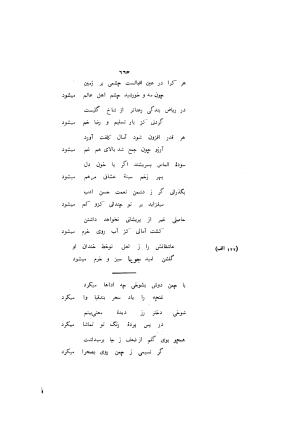 ۶۶۴
هر کرا در عین اقبالست چشمی بر زمین
چون مه و خورشید چشم اهل عالم میشود
در ریاض بندگی رعناتر از شاخ گلیست
گردنی کز بار تسلیم و رضا خم میشود
هر قدر افزون شود آمال کلفت آورد
آرزو چون جمع شد بالای هم غم میشود
سودهٔ الماس بسرشتند اگر با خون دل
بهر زخم سینهٔ عشاق مرهم میشود
بگذرانی گر ز دشمن نعمت حسن ادب
میفزاید بر تو چندانی کزو کم میشود
حاصلی غیر از پریشانی نخواهد داشتن
کشت آمالی کز آب روی خرم میشود
عاشقانش را ز لعل نوخط خندان او
(۱۱۱ الف)
گلشن امید جویا سبز و خرم میشود
با چمن دوش بشوخی چه اداها میکرد
غنچه را یاد سحر بندقبا وا میکرد
شوخی دختر رز دیدهٔ معنی‌بینم
در پس پردهٔ رنگ تو تماشا میکرد
همچو بوی گلم از ضعف ز جا برمیداشت
گر نسیمی ز چمن روی بصحرا میکرد